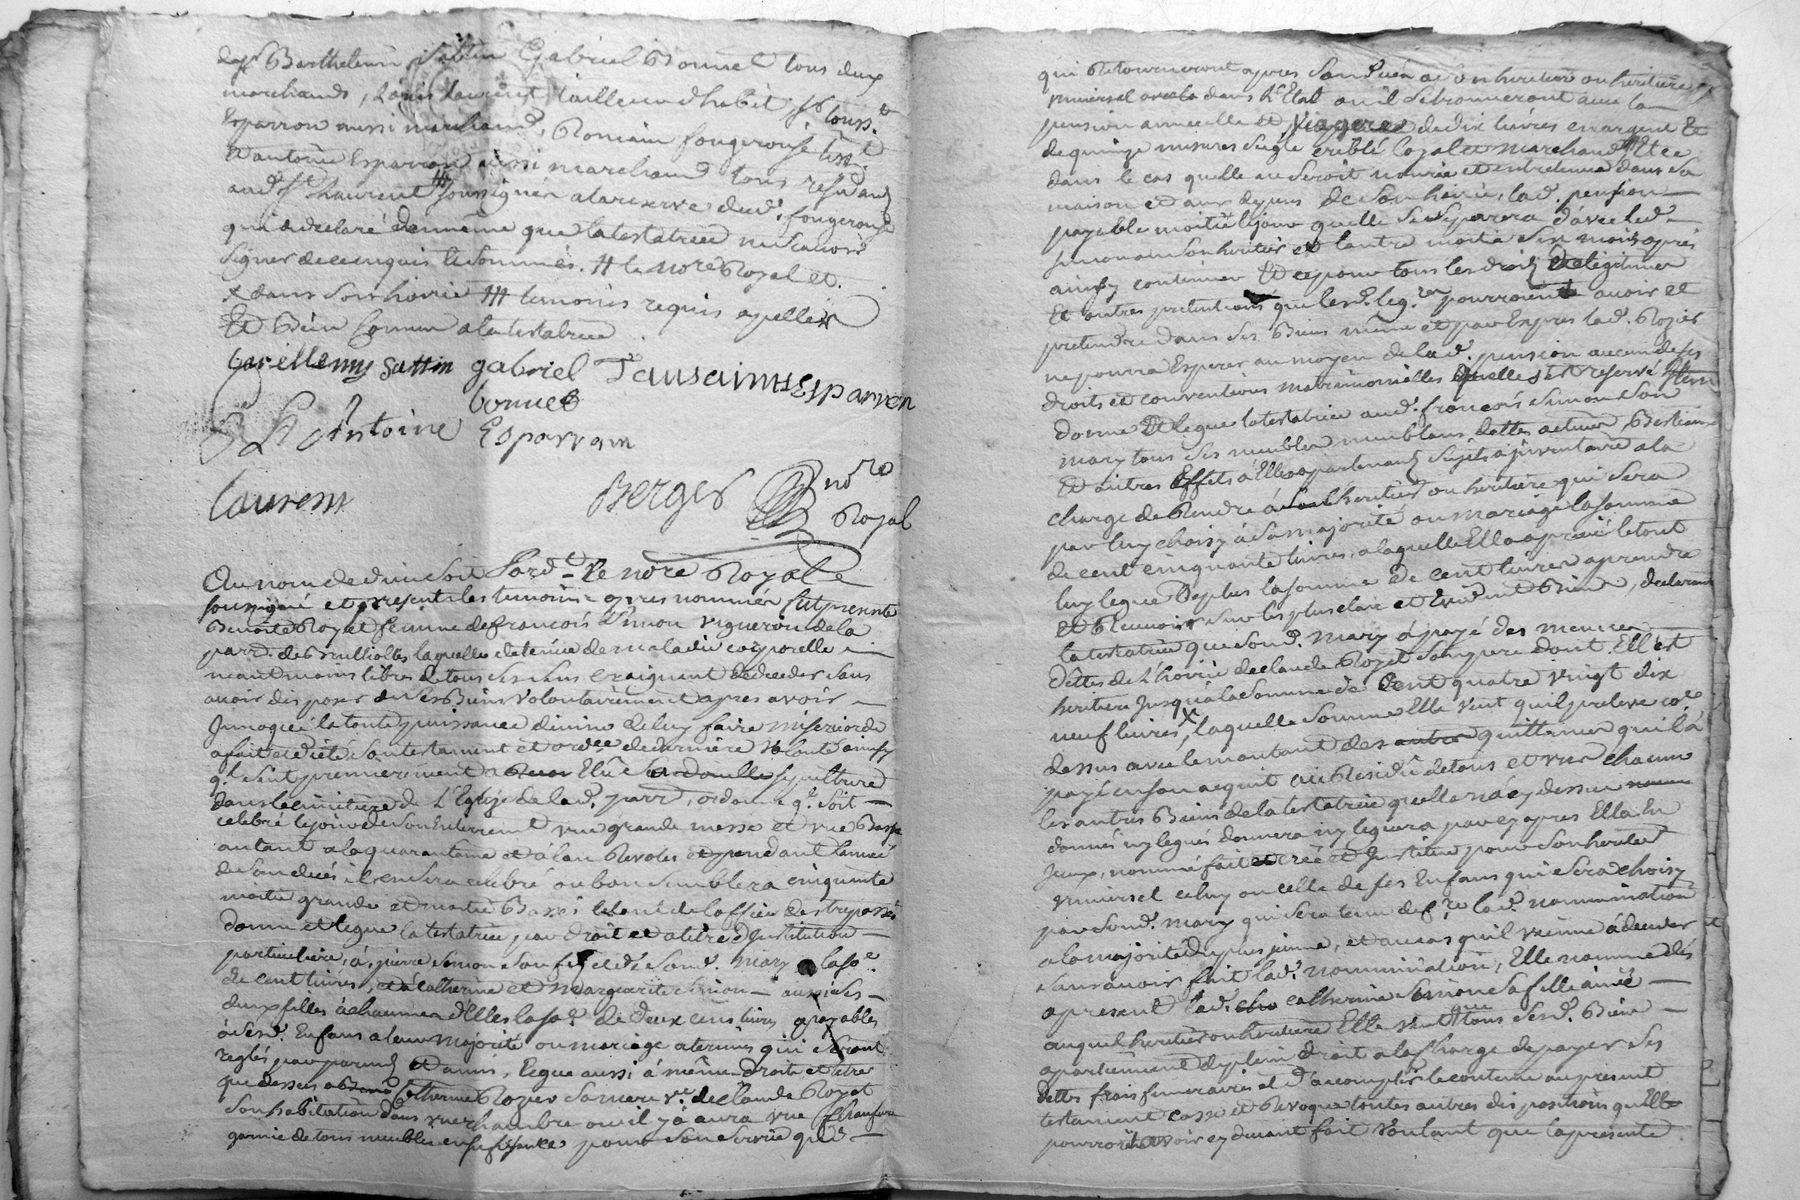 de Barthelemy Sattin Gabriel Bonnet tous deux
marchands, Laurent tailleur d'habit, St touss.t
Esparron aussi marchand, Romain fougerouse
et antoine Esparron aussi marchand tous residants
aud. St Laurent soussignes a la reserve dud. fougerouse
qui a declaré de meme que la testatrice ne savoir
signer de ce enquis et sommés. # le no.re Royal et
x dans son hoirie ### temoins requis apellés
et Bien Comun a la testatrice
bartellemy Sattin gabriel Tousaint Esparron
bonnet
Antoine Esparron
Laurent
Berger no.re
Royal
Au nom de dieu soit Pard.t Le no.re Royal
soussigné et presents les temoins apres nommés fut presente
Benoite Royet femme de francois Simon vigneron de la
parr. de laquelle detenue de maladie corporelle
neantmoins libres de tous ses sens craignant de deceder sans
avoir disposer de ses Biens volontairement apres avoir
Invoqué la toute puissance divine de luy faire misericorde
a fait et dicté son testament et ordce de derniere volonté ainsy
q.l suit premierement a Elû sepulture
dans le cimetiere de L'Eglize de lad. parr. ordonne q.l soit
celebré le jour de son Enterrement une grande messe et une Basse
autant a la quarantaine et a l'an Revolus et pendant l'année
de son decés il en sera celebré ou bon semblera cinquante
moitié grandes et moitié Basses le tout de l'office des trepassés
donne et legue la testatrice par droit et a titre d'Institution
particuliere, à pierre Simon son fils et de sond. mary la so.e
de cent livres, et à Catherine et Marguerite Simon aussi ses
deux filles à chacune d'Elles la so.e de deux cens livres payables
à sesd. Enfans a leur majorité ou mariage a termes qui seront
reglés par parens et amis, Legue aussi à même droit et titre
que dessus a Catherine Rozier sa mere v.e de Claude Royet
son habitation dans une chambre ou il y aura une
garnie de tous meubles en suffisance pour son service qui
qui Retourneront apres son decés a son heritier ou heritiere
universel dans L'Etat ou il se trouveront avec la
pension annuelle et viagere de dix livres en argent et
de quinze mesures seigle criblé loyal et marchand Et ce
dans le cas quelle ne seroit nourie et entretenue dans sa
maison et aux depens de son hoirie, lad. pension
payable moitié le jour quelle se separera d'avec led.
Simon ou son heritier et l'autre moitié six mois apres
ainsy continuer Et ce pour tous les droits de legitimes
et autres pretentions que lesd. leg.res pourroient avoir et
pretendre dans ses Biens même et par Expres lad. Rozier
ne pourra Esperer au moyen de lad. pension aucun de ses
droits et conventions matrimonielles quelle s'est reservé Item
donne et legue la testatrice aud. francois Simon son
mary tous ses meubles meublans dettes actives, Bestiaux
Et autres Effets à Elle apartenants sujets a inventaire a la
charge de Rendre à son heritier ou heritiere qui sera
par luy choisy à sa majorité ou mariage la somme
de cent cinquante livres, a laquelle Elle a aprecié le tout
luy legue de plus la somme de cent livres a prendre
et Recevoir sur les plus clair et Evident Biens, declarant
la testatrice que sond. mary à payé des memes
dettes de L'hoirie de Claude Royet son pere dont Elle est
heritiere jusqu'à la somme de cent quatre vingt dix
neuf livres, x laquelle somme Elle veut qu'il preleve co.e
dessus avec le montant des quittances qu'il à
payé en son acquit au Residû de tous et uns chacuns
les autres Biens de la testatrice quelle n'à cy dessus
donnés ny legués donnera ny leguera par cy apres Elle En
Iceux, nommé fait et créé et Institue pour son heritier
universel celuy ou celle de ses Enfans qui sera choisy
par sond. mary qui sera tenu de f.re lad. nommination
a la majorité du plus jeune, et au cas qu'il vienne à deceder
sans avoir fait lad. nommination, Elle nomme dés
a present lad. Catherine Simon sa fille ainée
auquel heritier ou heritiere Elle veut que tous sesd. Biens
apartiennent de plein droit a la charge de payer ses
dettes frais funeraires et d'accomplir le contenu au present
testament casse et Revoque toutes autres dispositions quelle
pourroit avoir cy devant fait voulant que la presente